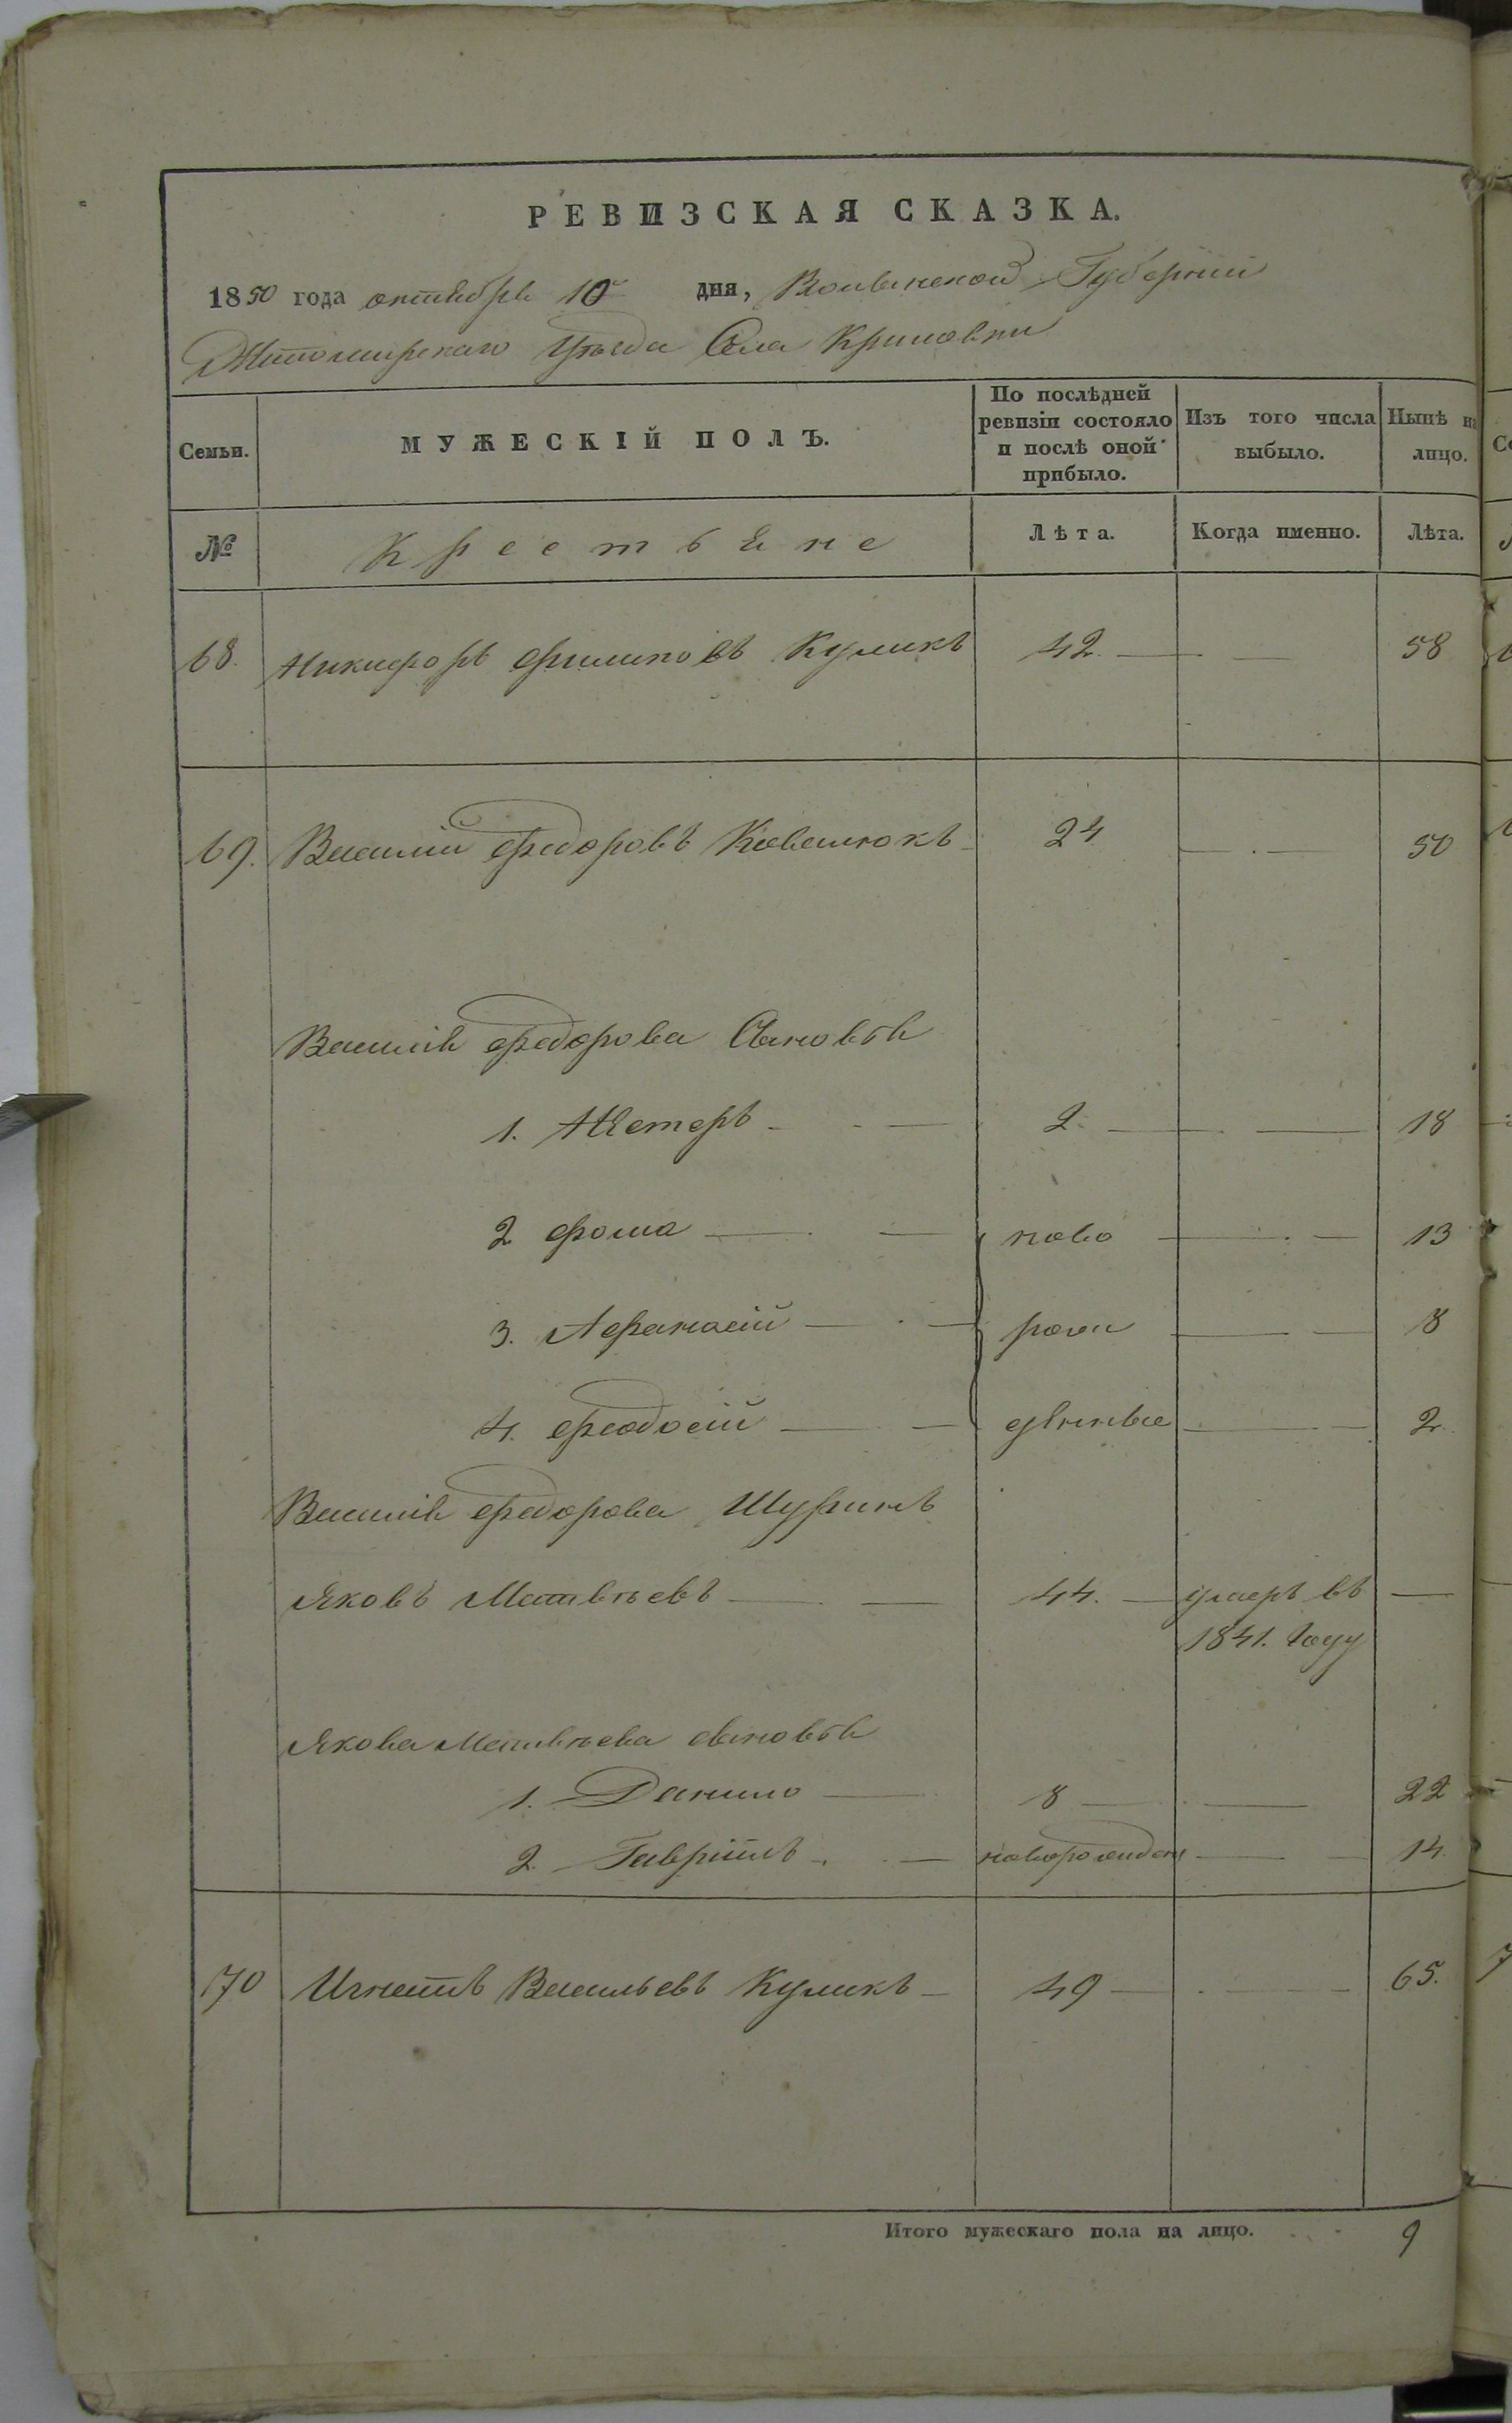 РЕВИЗСКАЯ СКАЗКА.
1850 года октября 10 дня, Волынской Губернии
Житомирскаго Уѣзда Села Криловки
Семьи. МУЖЕСКІЙ ПОЛЪ. По послѣдней ревизіи состояло и послѣ оной прибыло. Изъ того числа выбыло. Нынѣ на лицо.
№ Крестьяне Лѣта. Когда именно. Лѣта.
68. Никифоръ Филиповъ Куликъ 42. — — 58
69. Василій Федоровъ Ковалюкъ 24 — . — 50
Василія Федорова Сыновья
1. Нестеръ — 2. — — 18
2 Фома — — ново — . — 13
3. Афанасій — . — рожд — — 8
4. Феодосій — — енные — — 2.
Василія Федорова Шуринъ
Яковъ Матвѣевъ — — 44. — умеръ въ —
1841. году
Якова Матвѣева сыновья
1. Данило — 8 — . — 22
2. Гавріилъ — . — новорожден — — 14.
70 Игнатъ Васильевъ Куликъ — 49 — . — — 65.
Итого мужескаго пола на лицо. 9